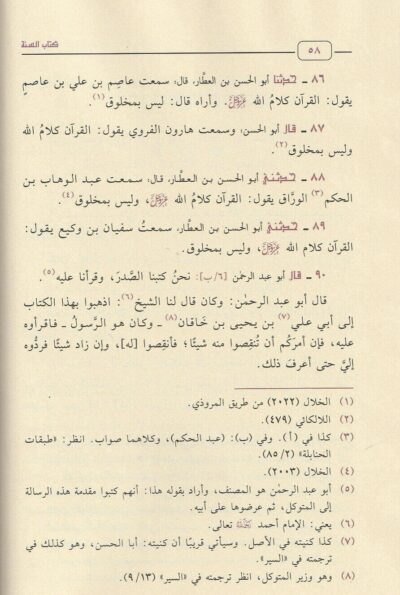 كتاب السنة
٥٨
٨٦ ـ حدثنا أبو الحسن بن العطَّار، قال: سمعت عاصِم بن علي بن عاصمٍ
يقول: القرآن كلامُ الله ﷻ. وأراه قال: ليس بمخلوق(١).
٨٧ ـ قال أبو الحسن: وسمعت هارون الفروي يقول: القرآن كلامُ الله
وليس بمخلوق(٢).
٨٨ ـ حدثني أبو الحسن بن العطار، قال: سمعت عبد الوهاب بن
الحكم(٣) الورَّاق يقول: القرآن كلامُ الله ﷻ، وليس بمخلوق(٤).
٨٩ ـ حدثني أبو الحسن بن العطار، سمعتُ سفيان بن وكيع يقول:
القرآن كلام الله ﷻ، وليس بمخلوق.
٩٠ ـ قال أبو عبد الرحمٰن [٦/ب]: نحنُ كتبنا الصَّدرَ، وقرأنا عليه(٥).
قال أبو عبد الرحمٰن: وكان قال لنا الشيخ(٦): اذهبوا بهذا الكتاب
إلى أبي علي(٧) بن يحيى بن خَاقان(٨) ـ وكان هو الرَّسولُ ـ فاقرأوه
عليه، فإن أمرَكُم أن تُنقِصوا منه شيئًا؛ فأنقِصوا [له]، وإن زاد شيئًا فردُّوه
إليَّ حتى أعرفَ ذلك.
(١) الخلال (٢٠٢٢) من طريق المروذي.
(٢) اللالكائي (٤٧٩).
(٣) كذا في (أ). وفي (ب): (عبد الحكم)، وكلاهما صواب. انظر: «طبقات
الحنابلة» (٢/٨٥).
(٤) الخلال (٢٠٠٣).
(٥) أبو عبد الرحمٰن هو المصنف، وأراد بقوله هذا: أنهم كتبوا مقدمة هذه الرسالة
إلى المتوكل، ثم عرضوها على أبيه.
(٦) يعني: الإمام أحمد رَحِمَهُ اللهُ تعالى.
(٧) كذا كنيته في الأصل. وسيأتي قريبًا أن كنيته: أبا الحسن، وهو كذلك في
ترجمته في «السير».
(٨) وهو وزير المتوكل، انظر ترجمته في «السير» (٩/١٣).